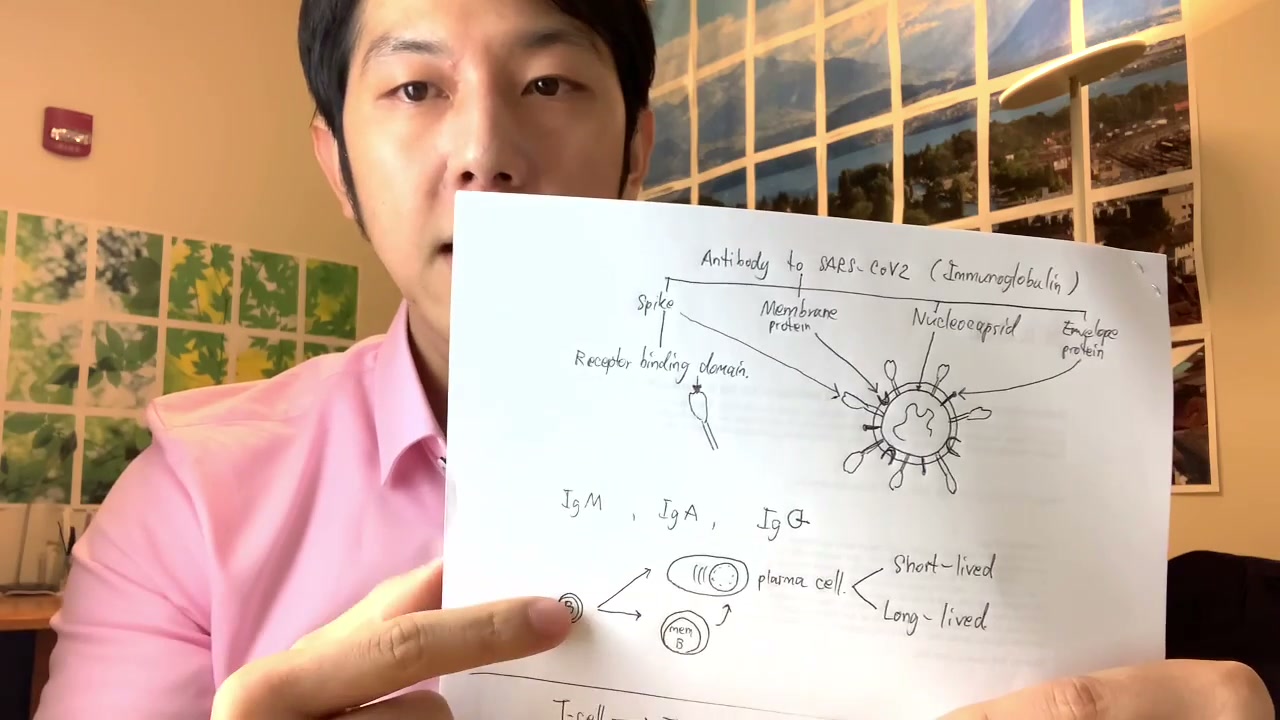 Antibody to SARS-CoV2 (Immunoglobulin)
Spike
Membrane
protein
Nucleocapsid
Envelope
protein
Receptor binding domain.
IgM , IgA , IgG
B
plasma cell.
Short-lived
Long-lived
mem
B
T-cell